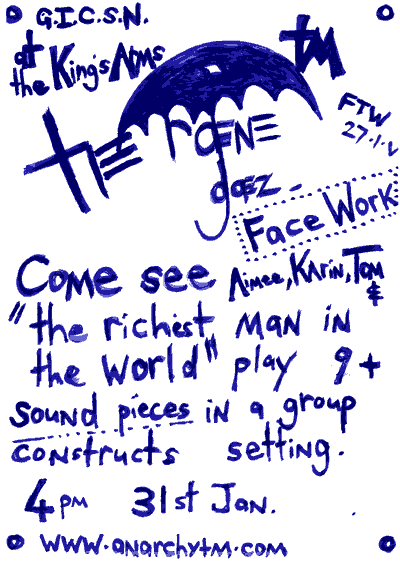 G.I.C.S.N.
at
the King's Arms
tm
FTW
tHE
Face Work
Come see Aimee, Karin, Tom
&
"the richest man in
the world" play 9 +
sound pieces in a group
constructs setting.
4 pm 31st Jan.
www.anarchytm.com